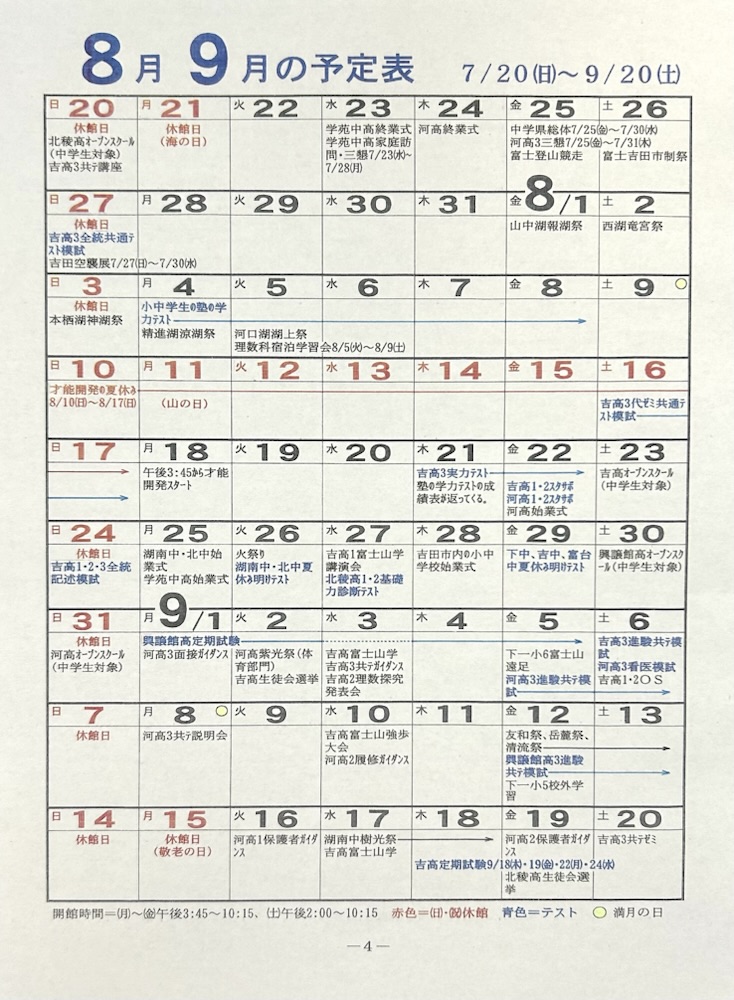 8月 9月の予定表 7/20(日)～9/20(土)
日 20 月 21 火 22 水 23 木 24 金 25 土 26
休館日
北稜高オープンスクール
(中学生対象)
吉高3共テ講座
休館日
(海の日)
学苑中高終業式
学苑中高家庭訪
問・三懇7/23(水)～
7/28(月)
河高終業式
中学県総体7/25(金)～7/30(水)
河高3三懇7/25(金)～7/31(木)
富士登山競走
富士吉田市制祭
日 27 月 28 火 29 水 30 木 31 金 8/1 土 2
休館日
吉高3全統共通テ
スト模試
吉田空襲展7/27(日)～7/30(水)
山中湖報湖祭
西湖竜宮祭
日 3 月 4 火 5 水 6 木 7 金 8 土 9
休館日
本栖湖神湖祭
小中学生の塾の学
力テスト
精進湖涼湖祭
河口湖湖上祭
理数科宿泊学習会8/5(火)～8/9(土)
日 10 月 11 火 12 水 13 木 14 金 15 土 16
才能開発の夏休み
8/10(日)～8/17(日)
(山の日)
吉高3代ゼミ共通テ
スト模試
日 17 月 18 火 19 水 20 木 21 金 22 土 23
午後3:45から才能
開発スタート
吉高3実力テスト
塾の学力テストの成
績表が返ってくる。
吉高1・2スタサポ
河高1・2スタサポ
河高始業式
吉高オープンスクール
(中学生対象)
日 24 月 25 火 26 水 27 木 28 金 29 土 30
休館日
吉高1・2・3全統
記述模試
湖南中・北中始
業式
学苑中高始業式
火祭り
湖南中・北中夏
休み明けテスト
吉高1富士山学
講演会
北稜高1・2基礎
力診断テスト
吉田市内の小中
学校始業式
下中、吉中、富台
中夏休み明けテスト
興譲館高オープンスク
ール(中学生対象)
日 31 月 9/1 火 2 水 3 木 4 金 5 土 6
休館日
河高オープンスクール
(中学生対象)
興譲館高定期試験
河高3面接ガイダンス
河高紫光祭(体
育部門)
吉高生徒会選挙
吉高富士山学
吉高3共テガイダンス
吉高2理数探究
発表会
下一小6富士山
遠足
河高3進験共テ模
試
吉高3進験共テ模
試
河高3看医模試
吉高1・2OS
日 7 月 8 火 9 水 10 木 11 金 12 土 13
休館日
河高3共テ説明会
吉高富士山強歩
大会
河高2履修ガイダンス
友和祭、岳麓祭、
清流祭
興譲館高3進験
共テ模試
下一小5校外学
習
日 14 月 15 火 16 水 17 木 18 金 19 土 20
休館日
休館日
(敬老の日)
河高1保護者ガイダ
ンス
湖南中樹光祭
吉高富士山学
吉高定期試験9/18(木)・19(金)・22(月)・24(水)
河高2保護者ガイダ
ンス
北稜高生徒会選
挙
吉高3共テゼミ
開館時間＝(月)～(金)午後3:45～10:15、(土)午後2:00～10:15 赤色＝(日)・(祝)休館 青色＝テスト 満月の日
―4―